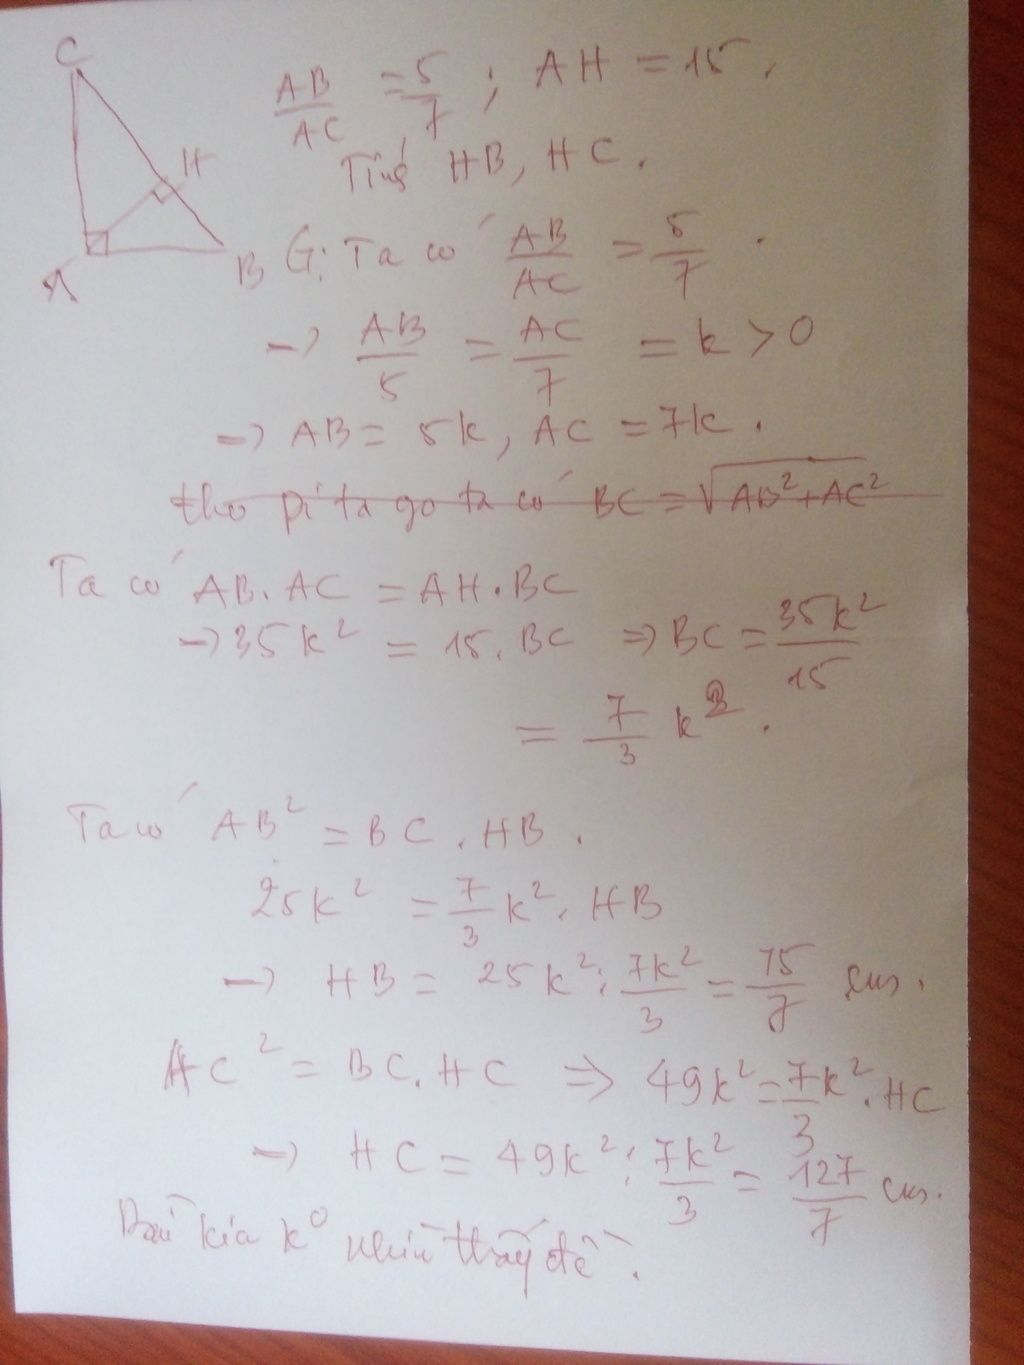 C
AB/AC = 5/7 ; AH = 15.
H
Tính HB, HC.
A
B
G: Ta có AB/AC = 5/7 .
→ AB/5 = AC/7 = k > 0
→ AB = 5k, AC = 7k.
theo pi ta go ta có BC = √AB²+AC²
Ta có AB.AC = AH.BC
→ 35k² = 15.BC ⇒ BC = 35k²/15
= 7/3 k².
Ta có AB² = BC.HB.
25k² = 7/3 k².HB
→ HB = 25k² : 7k²/3 = 75/7 cm.
AC² = BC.HC ⇒ 49k² = 7/3 k².HC
→ HC = 49k² : 7k²/3 = 127/7 cm.
Bài kia k⁰ nhìn thấy đề.